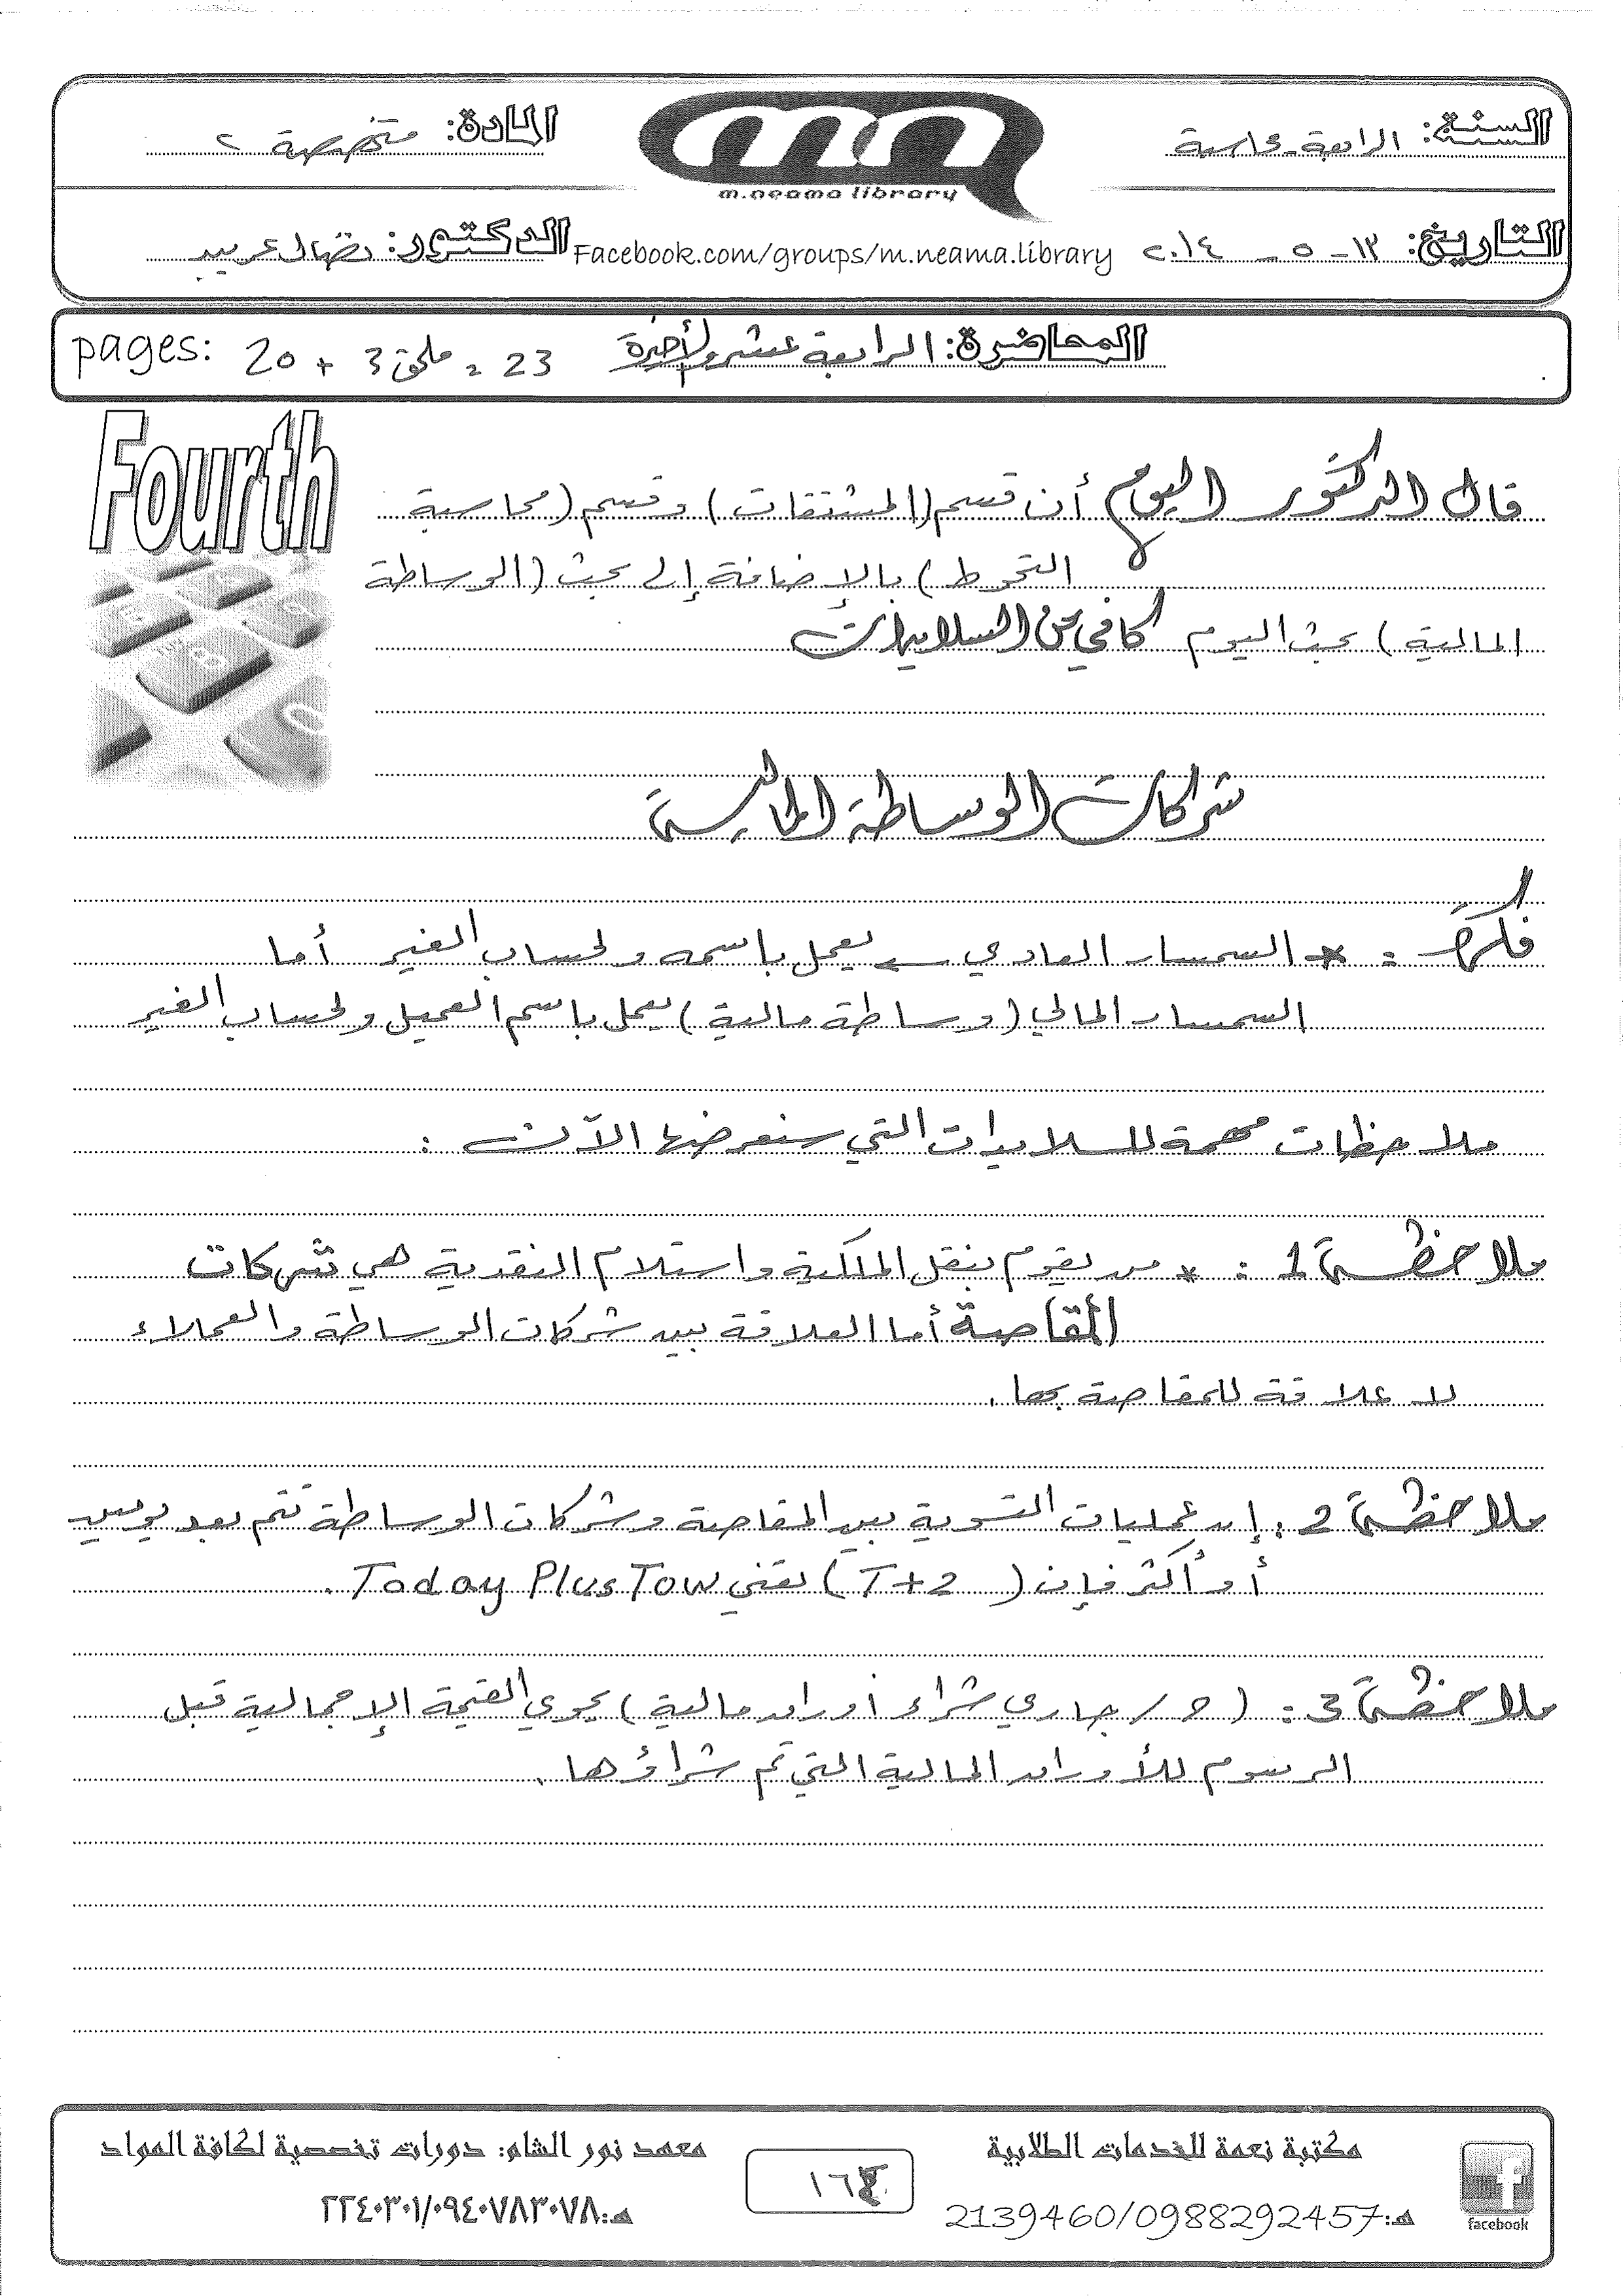 السنة: الرابعة - محاسبة
المادة: متخصصة ٢
m.neama library
التاريخ: ١٣ - ٥ - ٢٠١٤
Facebook.com/groups/m.neama.library
الدكتور: نضال عربيد
المحاضرة: الرابعة عشر والأخيرة
pages: 20 + ملحق 3 = 23
Fourth
قال الدكتور اليوم أن قسم (المشتقات) وقسم (محاسبة
التحوط) بالإضافة إلى بحث (الوساطة
المالية) بحث اليوم كافي من السلايدات
شركات الوساطة المالية
فكرة: * السمسار العادي يعمل باسمه ولحساب الغير أما
السمسار المالي (وساطة مالية) يعمل باسم العميل ولحساب الغير
ملاحظات مهمة للسلايدات التي سنعرضها الآن :
ملاحظة 1 : * من يقوم بنقل الملكية واستلام النقدية هي شركات
المقاصة أما العلاقة بين شركات الوساطة والعملاء
لا علاقة للمقاصة بها.
ملاحظة 2 : إن عمليات التسوية بين المقاصة وشركات الوساطة تتم بعد يومين
أو أكثر فإن (T+2) يعني Today Plus Tow.
ملاحظة 3 : (ح/جاري شراء أوراق مالية) يحوي القيمة الإجمالية قبل
الرسوم للأوراق المالية التي تم شراؤها.
facebook
مكتبة نعمة للخدمات الطلابية
هـ: 2139460/0988292457
معهد نور الشام: دورات تخصصية لكافة المواد
هـ: ٢٢٤٠٣٠١/٠٩٤٠٧٨٣٠٧٨